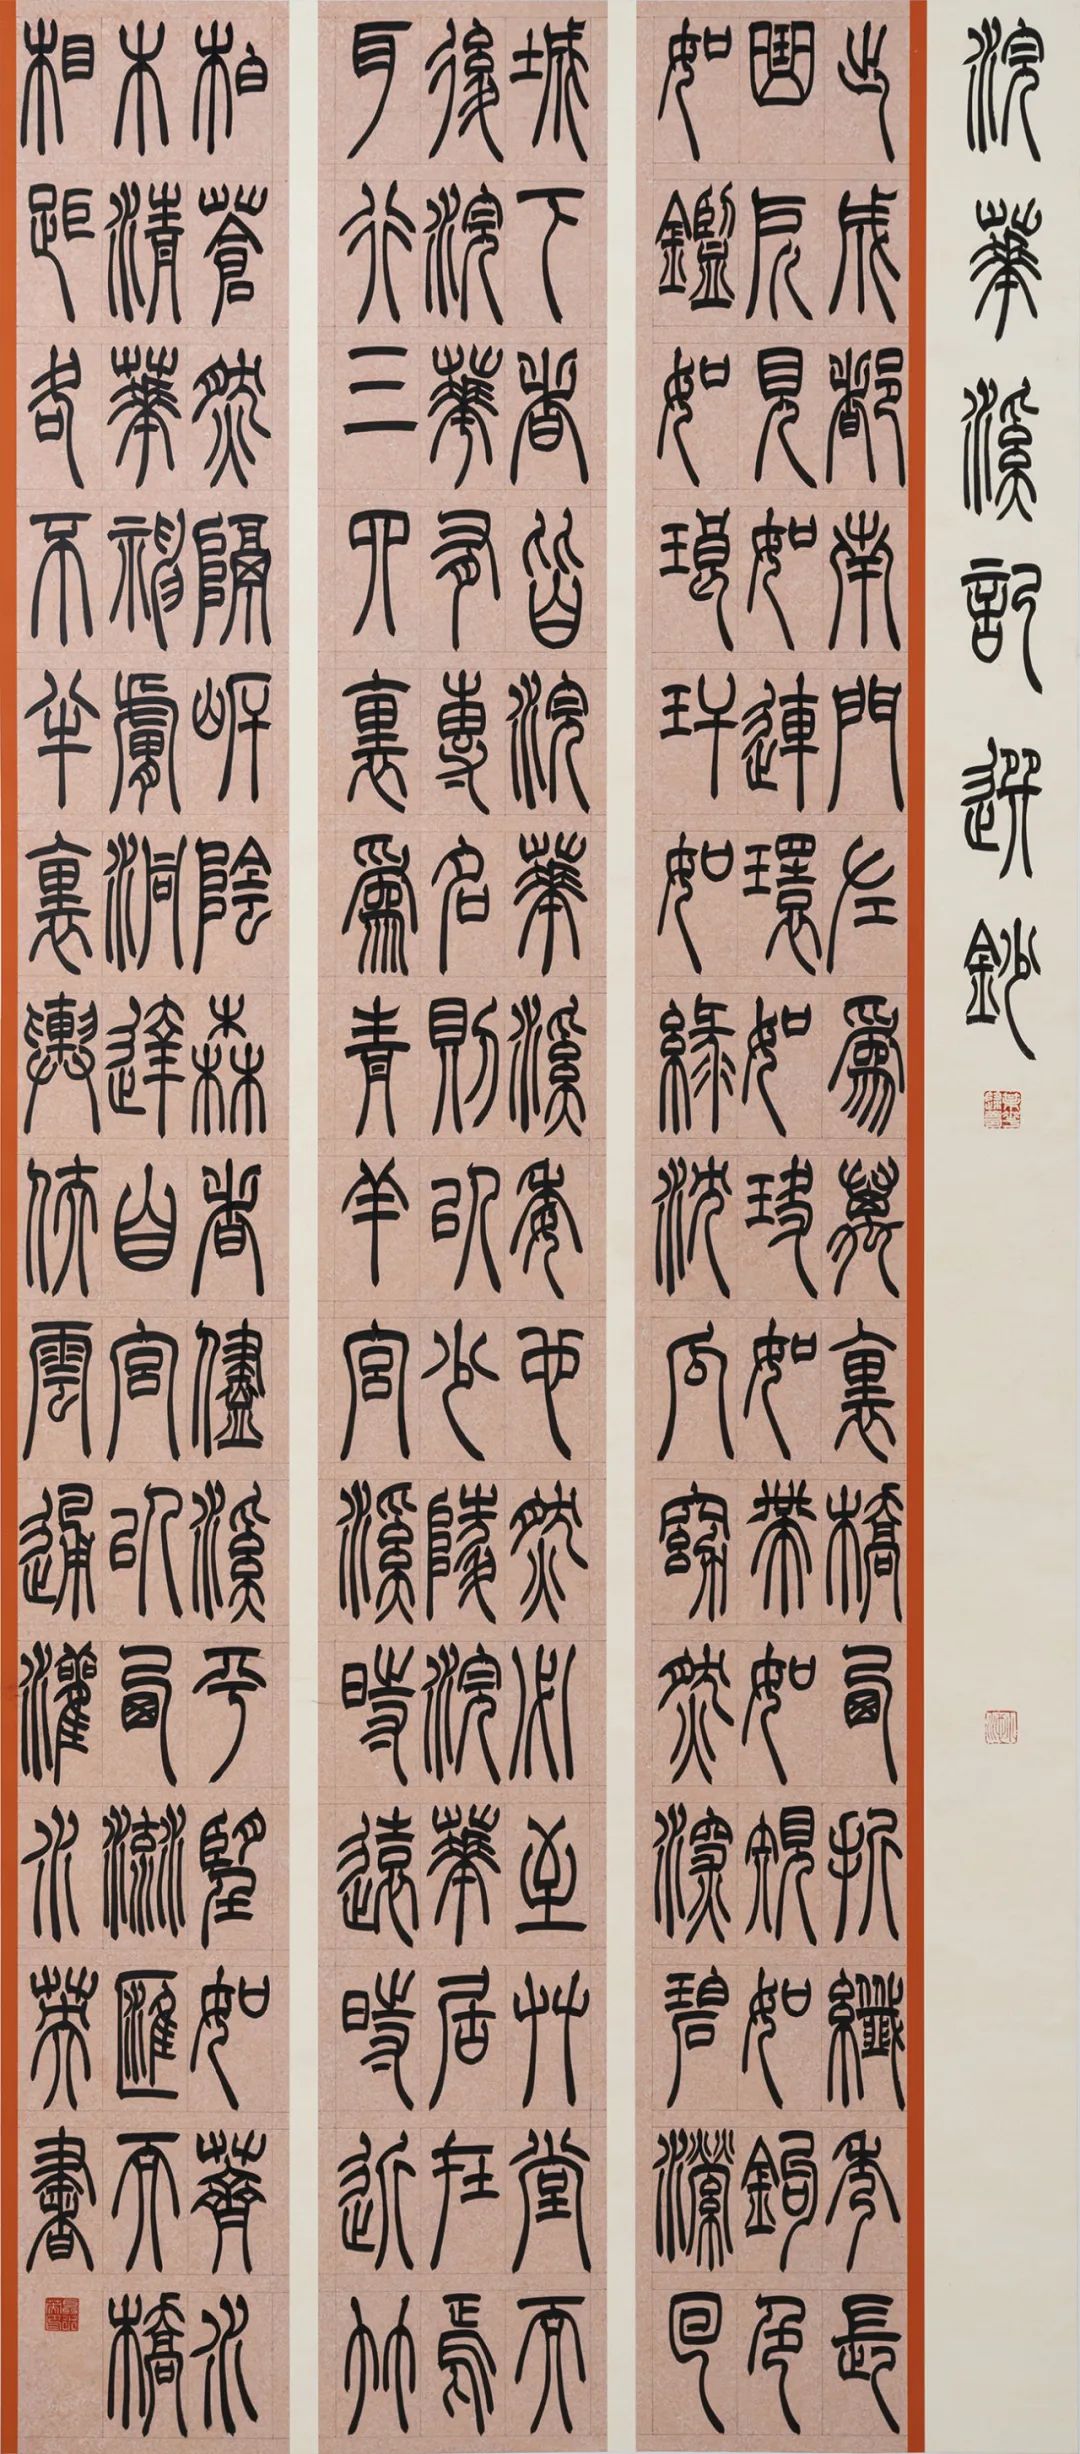 浣華溪記選鈔
出成都南門左爲萬裏橋西折纖秀長
曲所見如連環如玦如帶如規如鉤色
如鑑如琅玕如綠沈瓜窈然深碧瀠回
城下者皆浣華溪委也然必至艸堂而
後浣華有專名則以少陵浣華居在焉
耳行三四裏爲青羊宮溪時遠時近竹
柏蒼然隔岸陰森者儘溪平望如薺水
木清華神膚洞達自宮以西流匯而橋
相距各不半裏輿伕雲通灌水英書